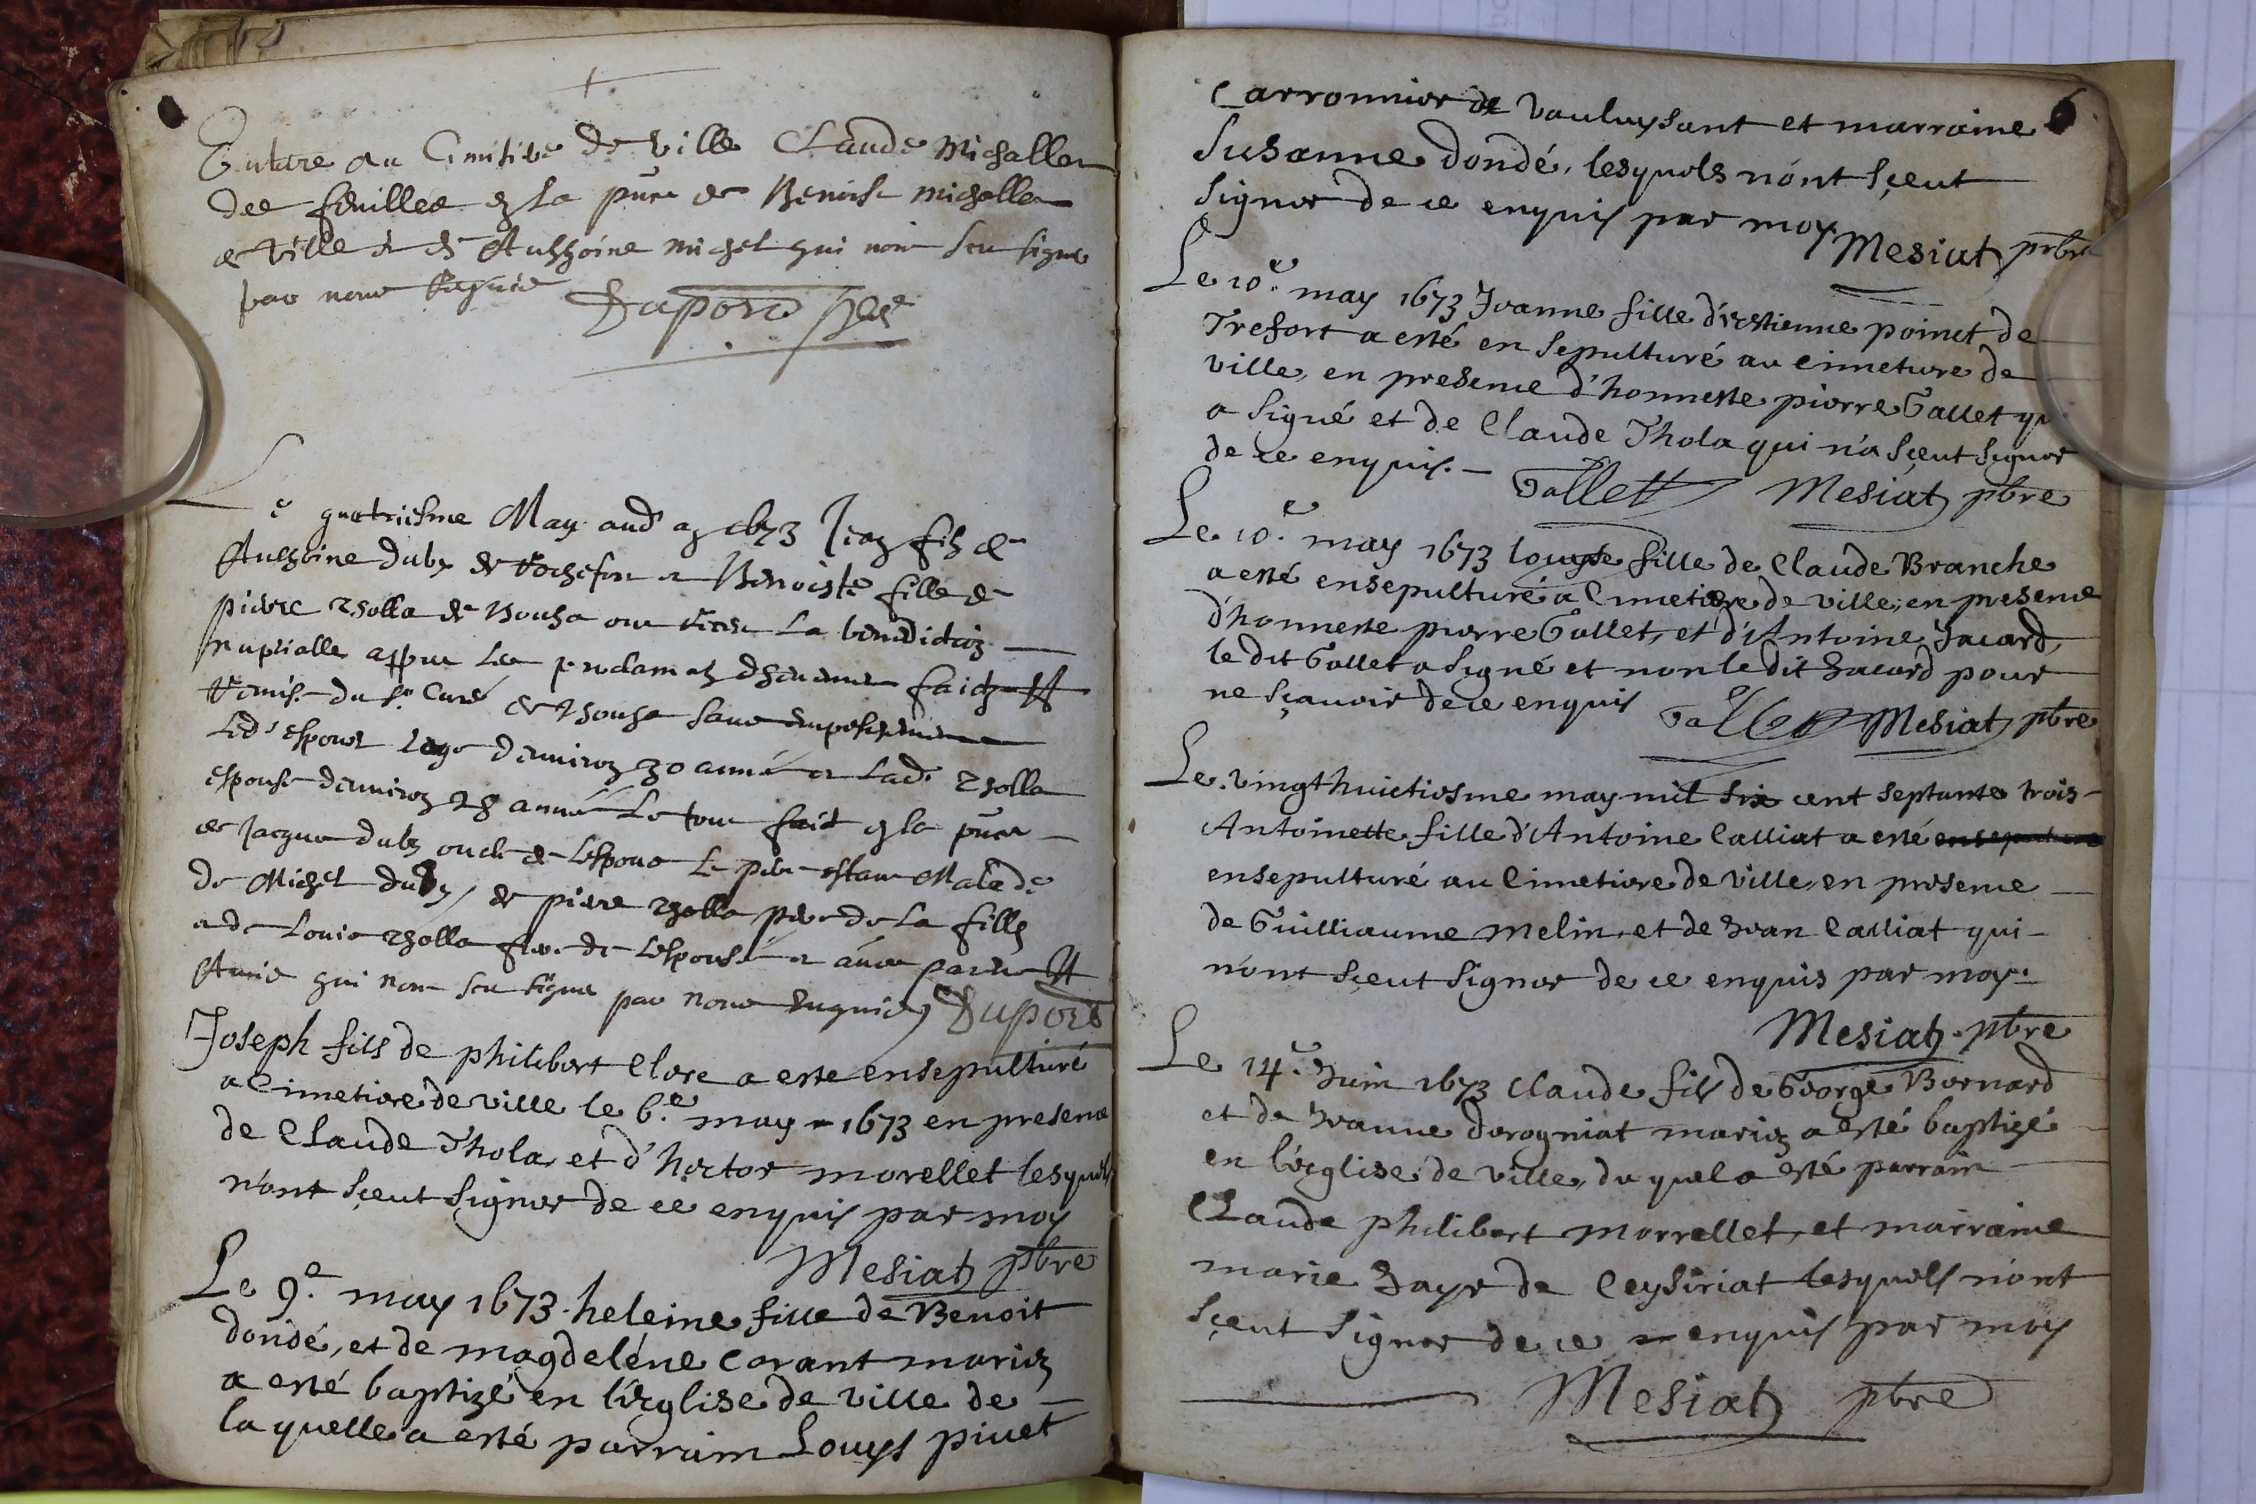 au Cimitive de ville Claude Michallon
des feuilles la pnce de Benoist michallon
de ville & Anthoine michel qui nont sceu signer
par nous enquis Duport
Le quatriesme May aud 1673 Jean fils de
Anthoine duby de Rochefort et Benoiste fille de
pierre Tholla de ont la benediction
nuptialle appres les proclamatz faictz et
du Sr Curé de sans empeschement
Led espoux d'environ 30 année et lad Tholla
espouse d'environ 28 année Le tout fait la pnce
de Jacque duby oncle de l'espoux Le pere estant Malade
de Michel duby de piere tholla pere de la fille
et de Louis tholla frere de l'espousée et autre parens et
Amis qui nont sceu signer par nous enquis Duport
Joseph fils de philibert Clere a esté ensepulturé
a Cimetiere de ville le 6.e may 1673 en presence
de Claude Thola, et d'hector morellet lesquels
n'ont sçeut signer de ce enquis par moy
Mesiat pbre
Le 9.e may 1673. heleine fille de Benoit
dondé, et de magdeléne Corant mariez
a esté baptizé en l'eglise de ville de
laquelle a esté parrain Louys piuet
6
Carronnier de Vauluysant et marraine
Susanne dondé, lesquels n'ont sçeut
signer de ce enquis par moy Mesiat pbre
Le 10.e may 1673 Jeanne fille d'estienne poinct de
Trefort a esté en sepulturé au cimeture de
ville, en presence d'honneste pierre Gallet qu
a signé et de Claude Thola qui n'a sçeut signer
de ce enquis. Gallet Mesiat pbre
Le 10.e may 1673 louyse fille de Claude Branche
a esté ensepulturé a Cimetiere de ville, en presence
d'honneste pierre Gallet, et d'Antoine Jacard,
le dit Gallet a signé et non le dit Jacard pour
ne sçavoir de ce enquis Gallet Mesiat pbre
Le vingthuictiesme may mil six cent septante trois
Antoinette fille d'Antoine Calliat a esté ensepulturé
ensepulturé au Cimetiere de ville, en presence
de Guilliaume Melin, et de Jean Calliat qui
n'ont sçeut signer de ce enquis par moy.
Mesiat pbre
Le 14.e Juin 1673 Claude fils de George Bernard
et de Jeanne derogniat mariez a esté baptizé
en l'eglise de ville, du quel a esté parrain
Claude philibert Morrellet, et marraine
marie Jayr de Ceysiriat lesquels n'ont
sçeut signer de ce enquis par moy
Mesiat pbre